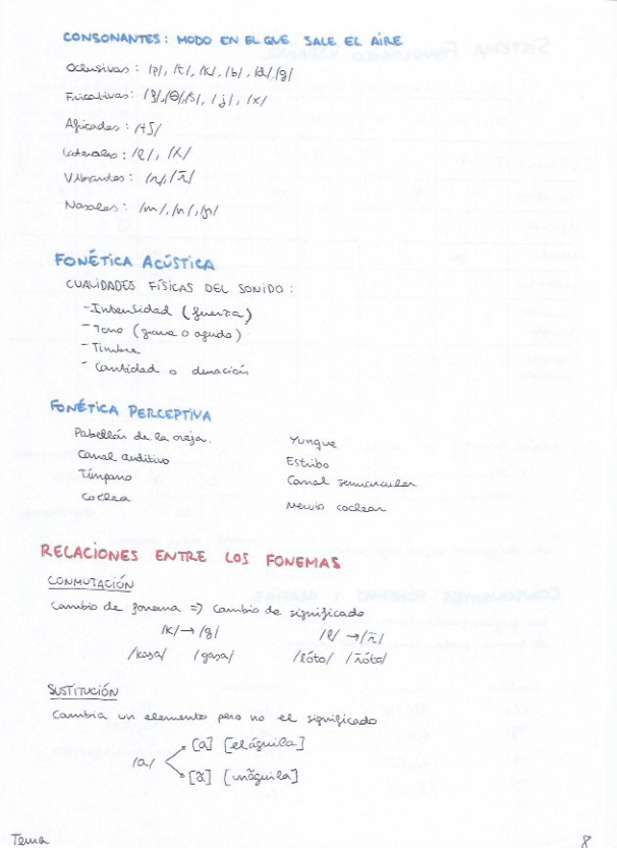 CONSONANTES: MODO EN EL QUE SALE EL AIRE
Oclusivas: /p/, /t/, /k/, /b/, /d/, /g/
Fricativas: /f/, /θ/, /s/, /j/, /x/
Africadas: /tʃ/
Laterales: /l/, /ʎ/
Vibrantes: /r/, /r̄/
Nasales: /m/, /n/, /ɲ/
FONÉTICA ACÚSTICA
CUALIDADES FÍSICAS DEL SONIDO:
- Intensidad (fuerza)
- Tono (grave o agudo)
- Timbre
- Cantidad o duración
FONÉTICA PERCEPTIVA
Pabellón de la oreja. Yunque
Canal auditivo Estribo
Tímpano Canal semicircular
Coclea Nervio coclear
RELACIONES ENTRE LOS FONEMAS
CONMUTACIÓN
Cambio de fonema => Cambio de significado
/k/ → /g/ /l/ → /r̄/
/kasa/ /gasa/ /lóto/ /r̄óto/
SUSTITUCIÓN
Cambia un elemento pero no el significado
/a/ [a] [eláguila]
[ã] [unãguila]
Tema 8